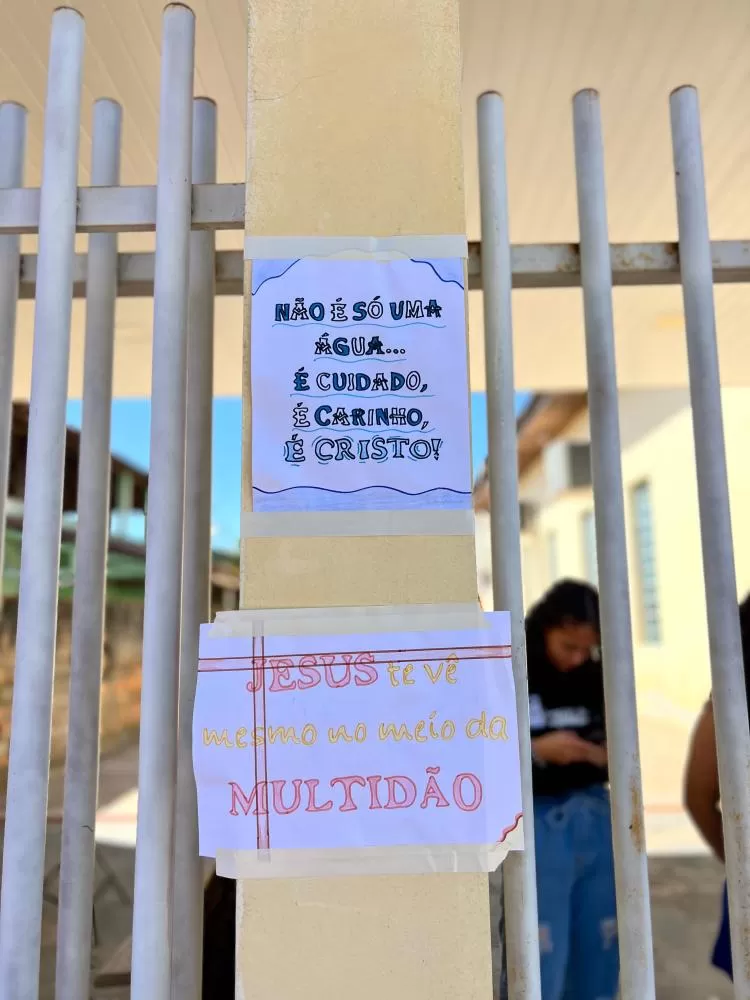 NÃO É SÓ UMA
ÁGUA...
É CUIDADO,
É CARINHO,
É CRISTO!
JESUS te vê
mesmo no meio da
MULTIDÃO